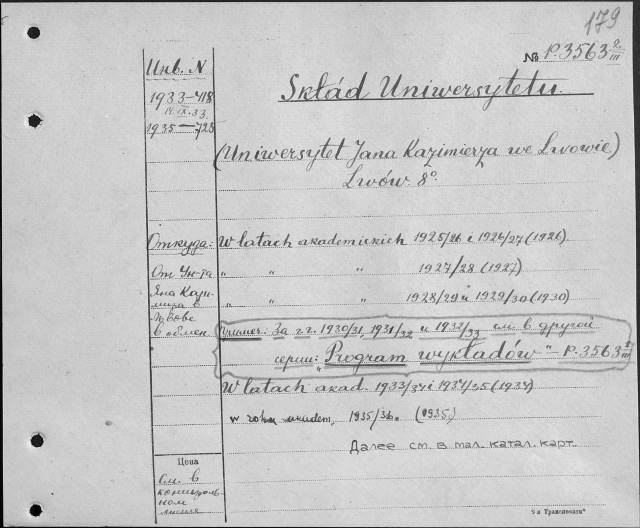 179
№ P.3563 2/III
Инв. N
1933—418
14.IX.33.
1935—725
Skład Uniwersytetu.
(Uniwersytet Jana Kazimierza we Lwowie)
Lwów. 8°.
Откуда:
От Ун-та
Яна Кази-
мира в
Львове
в обмен
W latach akademickich 1925/26 i 1926/27 (1926).
„ „ „ 1927/28 (1927)
„ „ „ 1928/29 i 1929/30 (1930)
Примеч: За г.г. 1930/31, 1931/32 и 1932/33 см. в другой
серии: „Program wykładów" – P.3563 1/III
W latach akad. 1933/34 i 1934/35 (1934)
w roku akadem. 1935/36. (1935)
Далее см. в мал. катал. карт.
Цена
См. в
контроль-
ном
листке